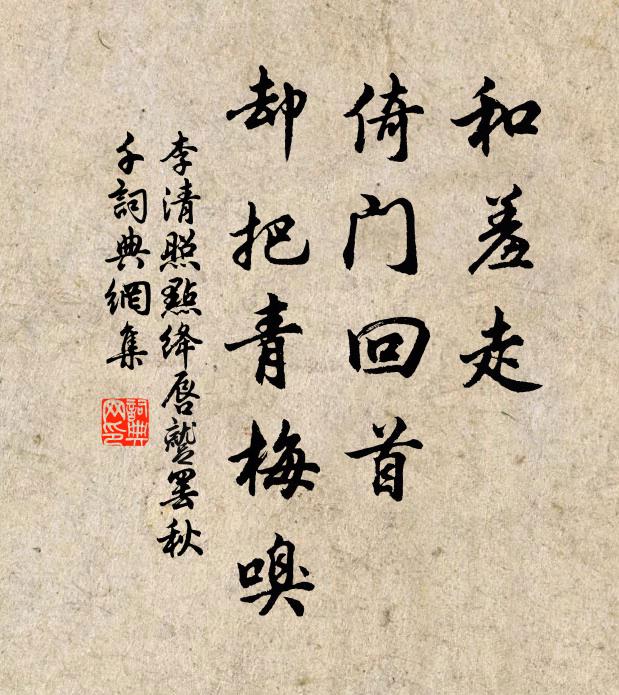 和羞走
倚门回首
却把青梅嗅
李清照點绛唇蹵罢秋
千詞典網集
詞典网印